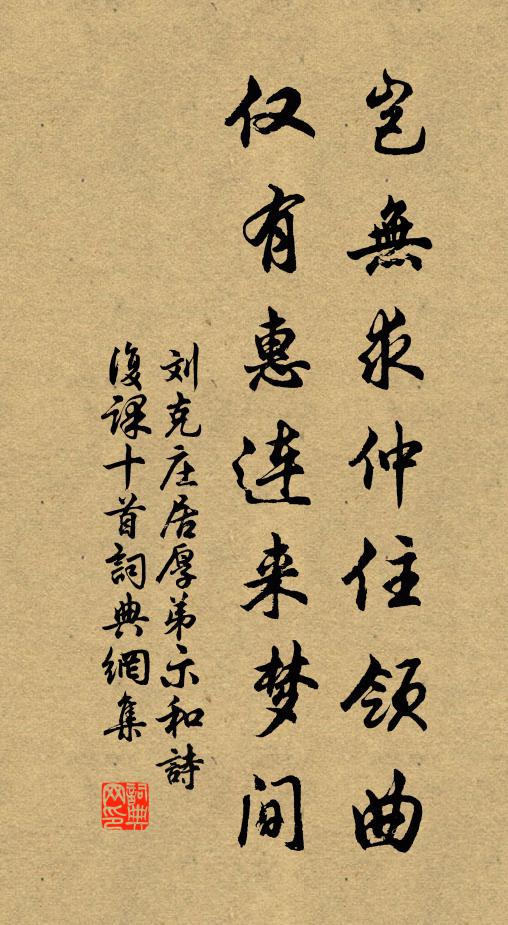 岂無求仲住领曲
仅有惠连来梦间
刘克庄居厚弟示和詩
復课十首詞典網集
詞典網印